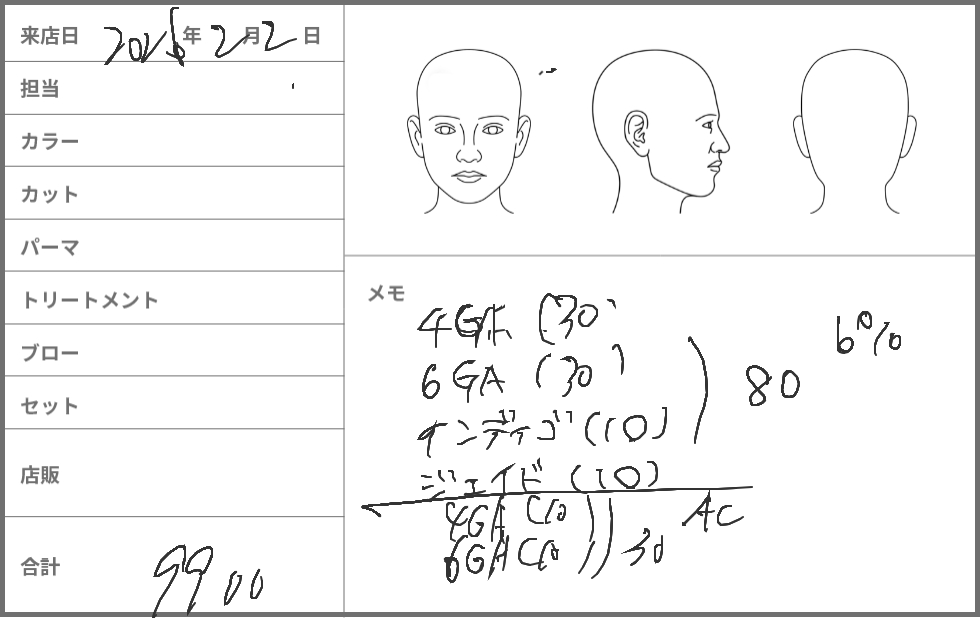 来店日 2026年 2月2日
担当
カラー
カット
パーマ
トリートメント
ブロー
セット
店販
合計 9900
メモ
4GA (30)
6GA (30) 80 6%
インディゴ (10)
ジェイド (10)
4GA (10) AC
6GA (10) 30